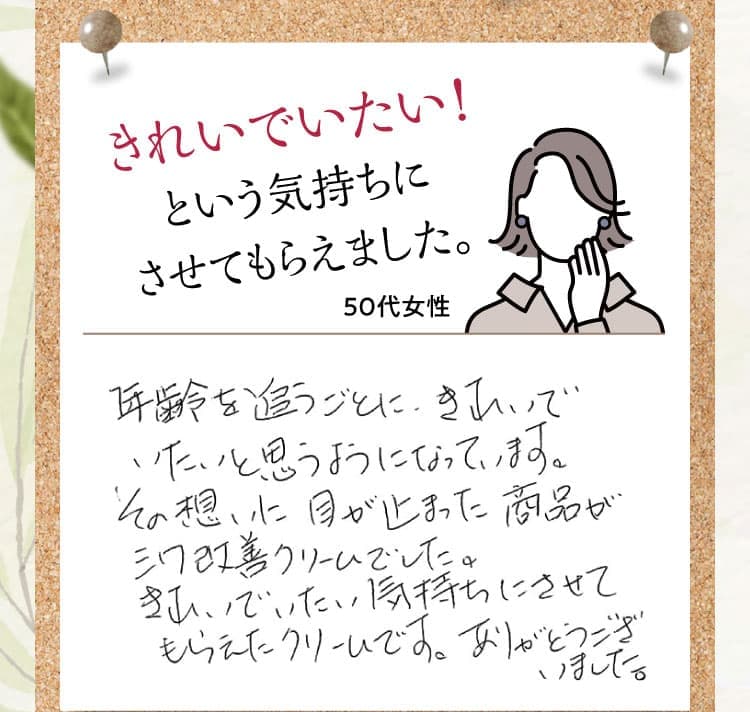 きれいでいたい!
という気持ちに
させてもらえました。
50代女性
年齢を追うごとに、きれいで
いたいと思うようになっています。
その想いに目が止まった商品が
シワ改善クリームでした。
きれいでいたい気持ちにさせて
もらえたクリームです。ありがとうござ
いました。